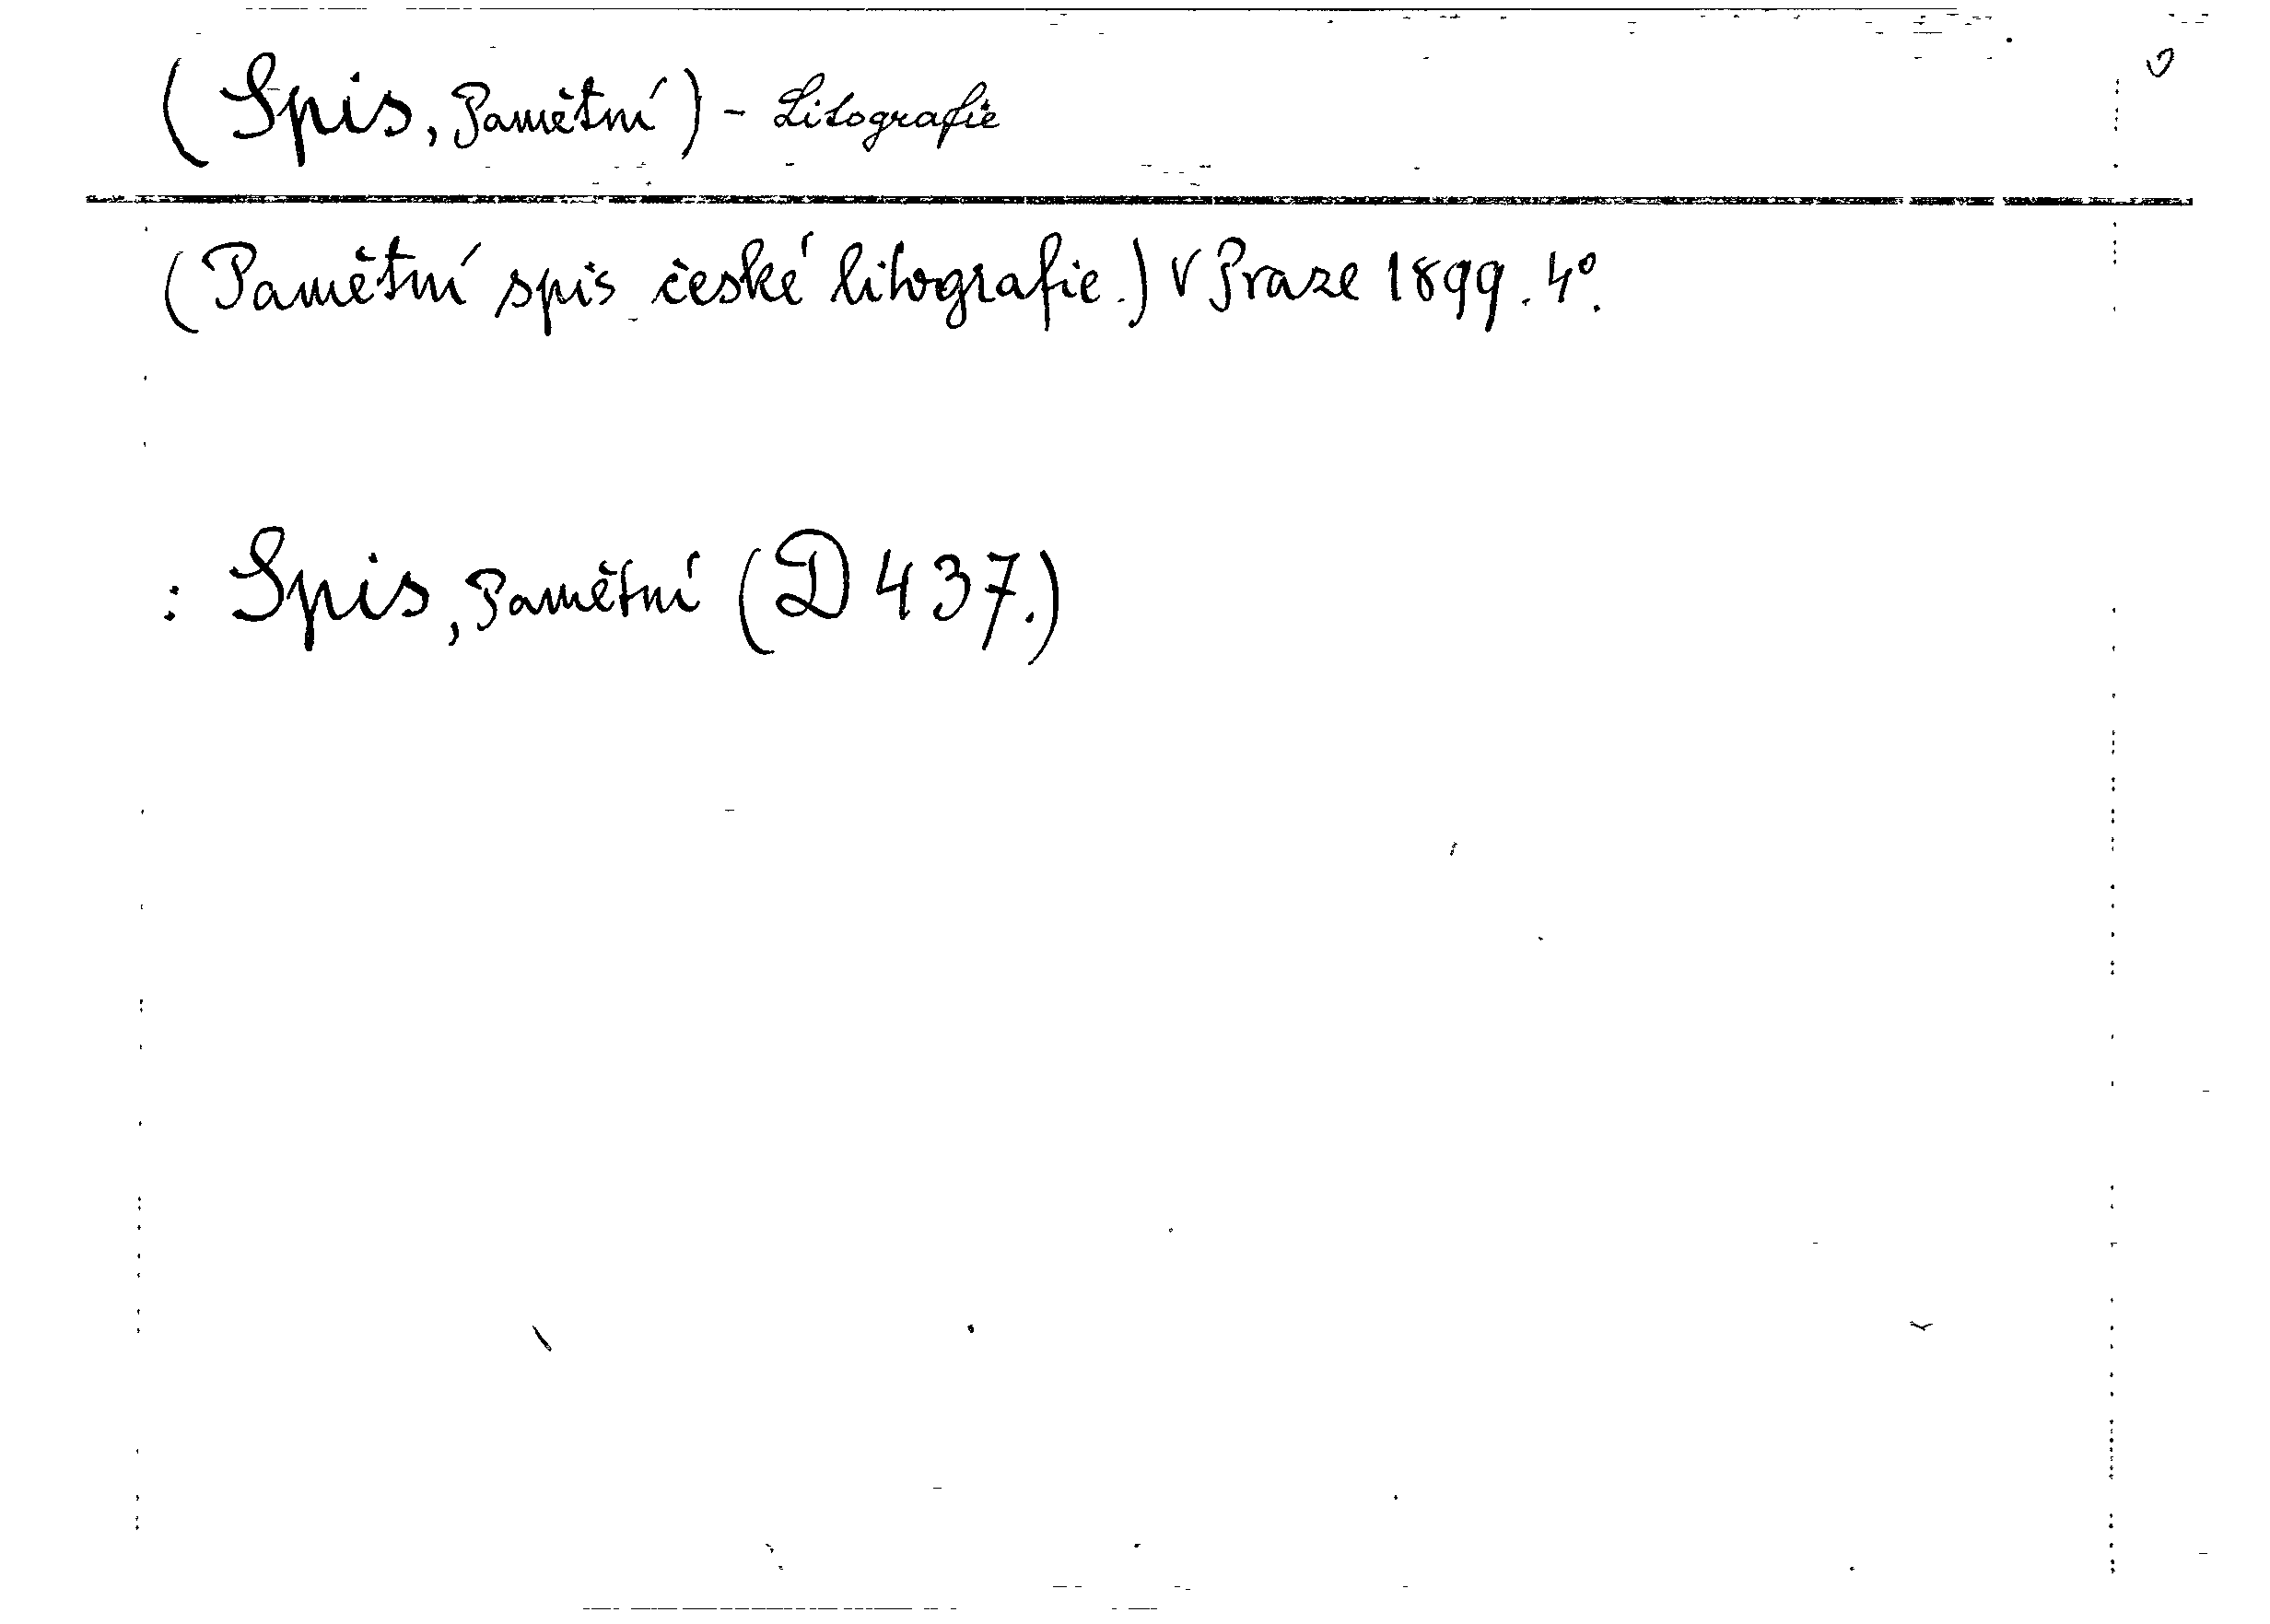 (Spis, Pamětní) - Litografie
(Pamětní spis české litografie.) V Praze 1899. 4°.
: Spis, Pamětní (D 437.)